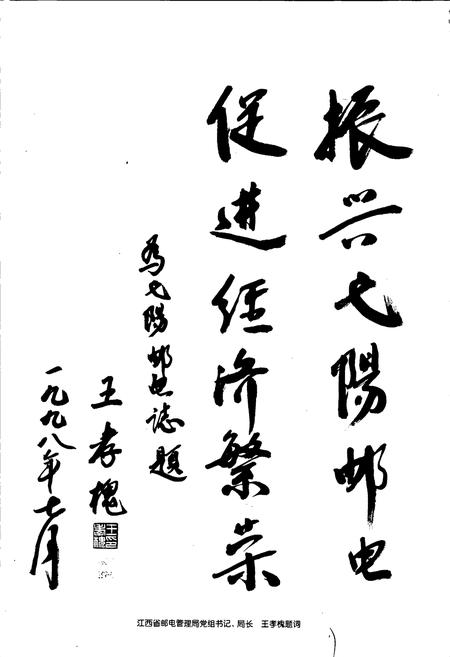 振兴弋陽邮电
促进经济繁荣
为弋陽邮电誌题
王孝槐
一九九八年七月
江西省邮电管理局党组书记、局长 王孝槐题词